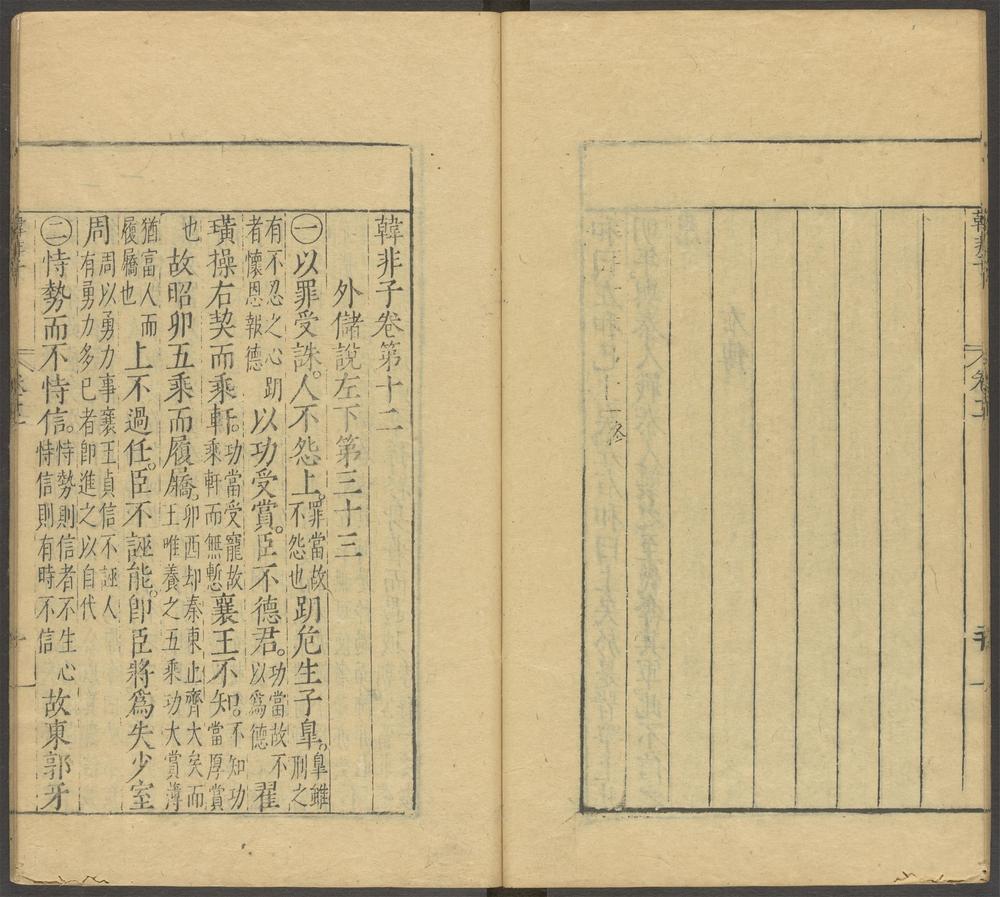 韓非子卷第十二
外儲說左下第三十三
㊀以罪受誅。人不怨上。罪當故不怨也跀危生子臯。臯雖刑之
有不忍之心跀者懷恩報德以功受賞。臣不德君。功當故不以爲德翟
璜操右契而乘軒。功當受寵故乘軒而無慙襄王不知。不知功當厚賞
也故昭卯五乘而履屩。卯西却秦東止齊大矣而王唯養之五乘功大賞薄
猶富人而履屩也上不過任。臣不誣能。卽臣將爲失少室
周周以勇力事襄王貞信不誣人有勇力多已者卽進之以自代
㊁恃勢而不恃信。恃勢則信者不生心恃信則有時不信故東郭牙